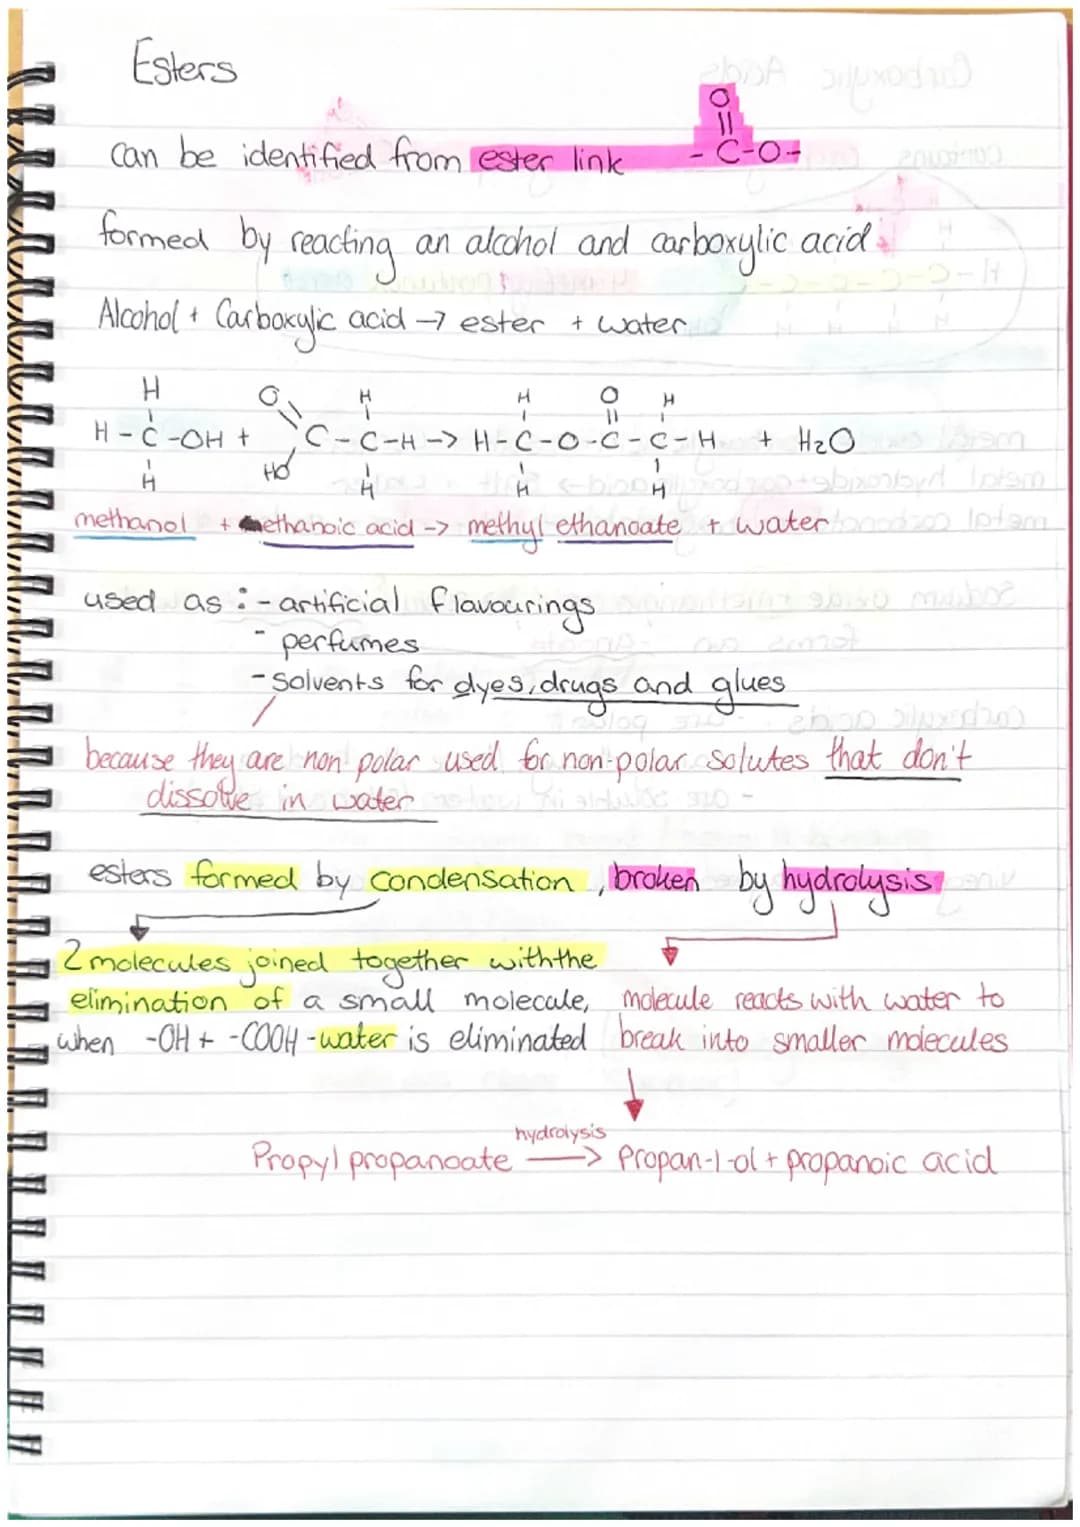 Esters
can be identified from ester link
O
||
- C-O-
formed by reacting an alcohol and carboxylic acid.
Alcohol + Carboxylic acid → ester + water
H O H H O H
H - C - OH + C - C - H -> H - C - O - C - C - H + H2O
H HO H H H
methanol + ethanoic acid -> methyl ethanoate + water
used as : - artificial flavourings
- perfumes
- solvents for dyes, drugs and glues
because they are non polar used for non-polar solutes that don't
dissolve in water
esters formed by condensation, broken by hydrolysis
2 molecules joined together withthe
elimination of a small molecule,
when -OH + -COOH - water is eliminated
molecule reacts with water to
break into smaller molecules
hydrolysis
Propyl propanoate —> Propan-1-ol + propanoic acid